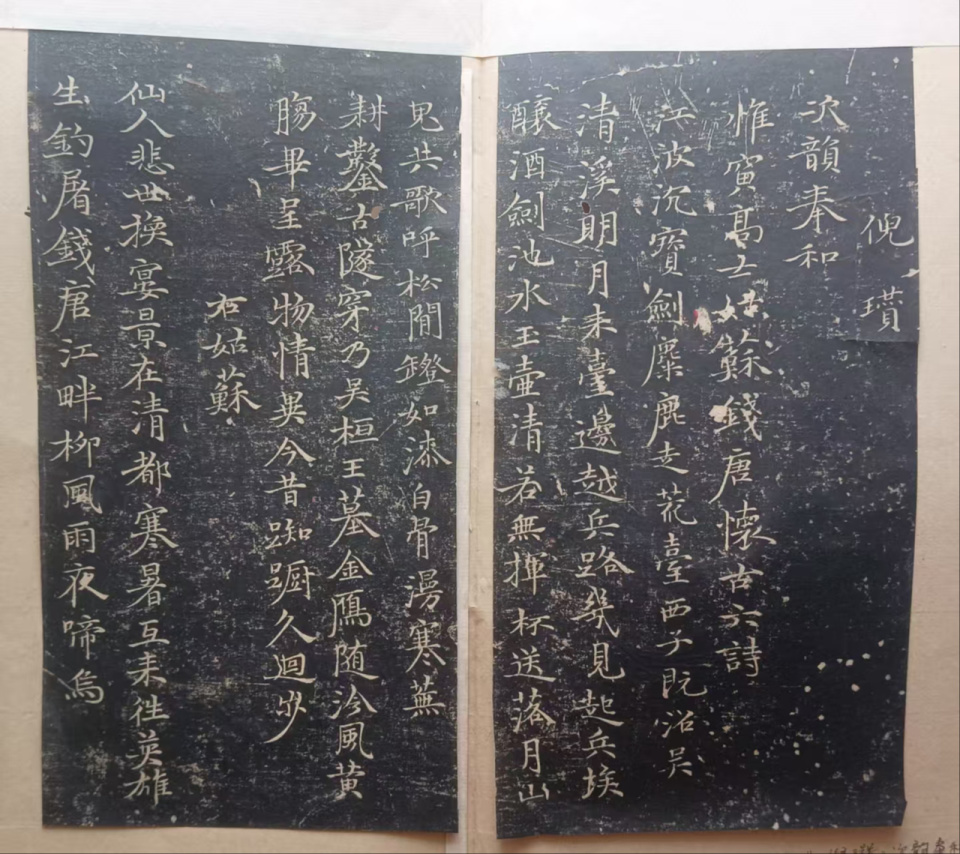 倪瓚
次韻奉和
惟寅高士姑蘇錢唐懷古六詩
江波沉寶劍麋鹿走花臺西子既沼吳
清溪明月来臺邊越兵路幾見起兵埃
釀酒劍池水玉壺清若無揮杯送落月山
鬼共歌呼松間鐙如漆白骨漫寒蕪
耕鑿古隧穿乃吳桓王墓金鴈随冷風黃
腸畢呈露物情異今昔踟蹰久迴步
右姑蘇
仙人悲世換宴景在清都寒暑互来往英雄
生釣屠錢唐江畔柳風雨夜啼烏